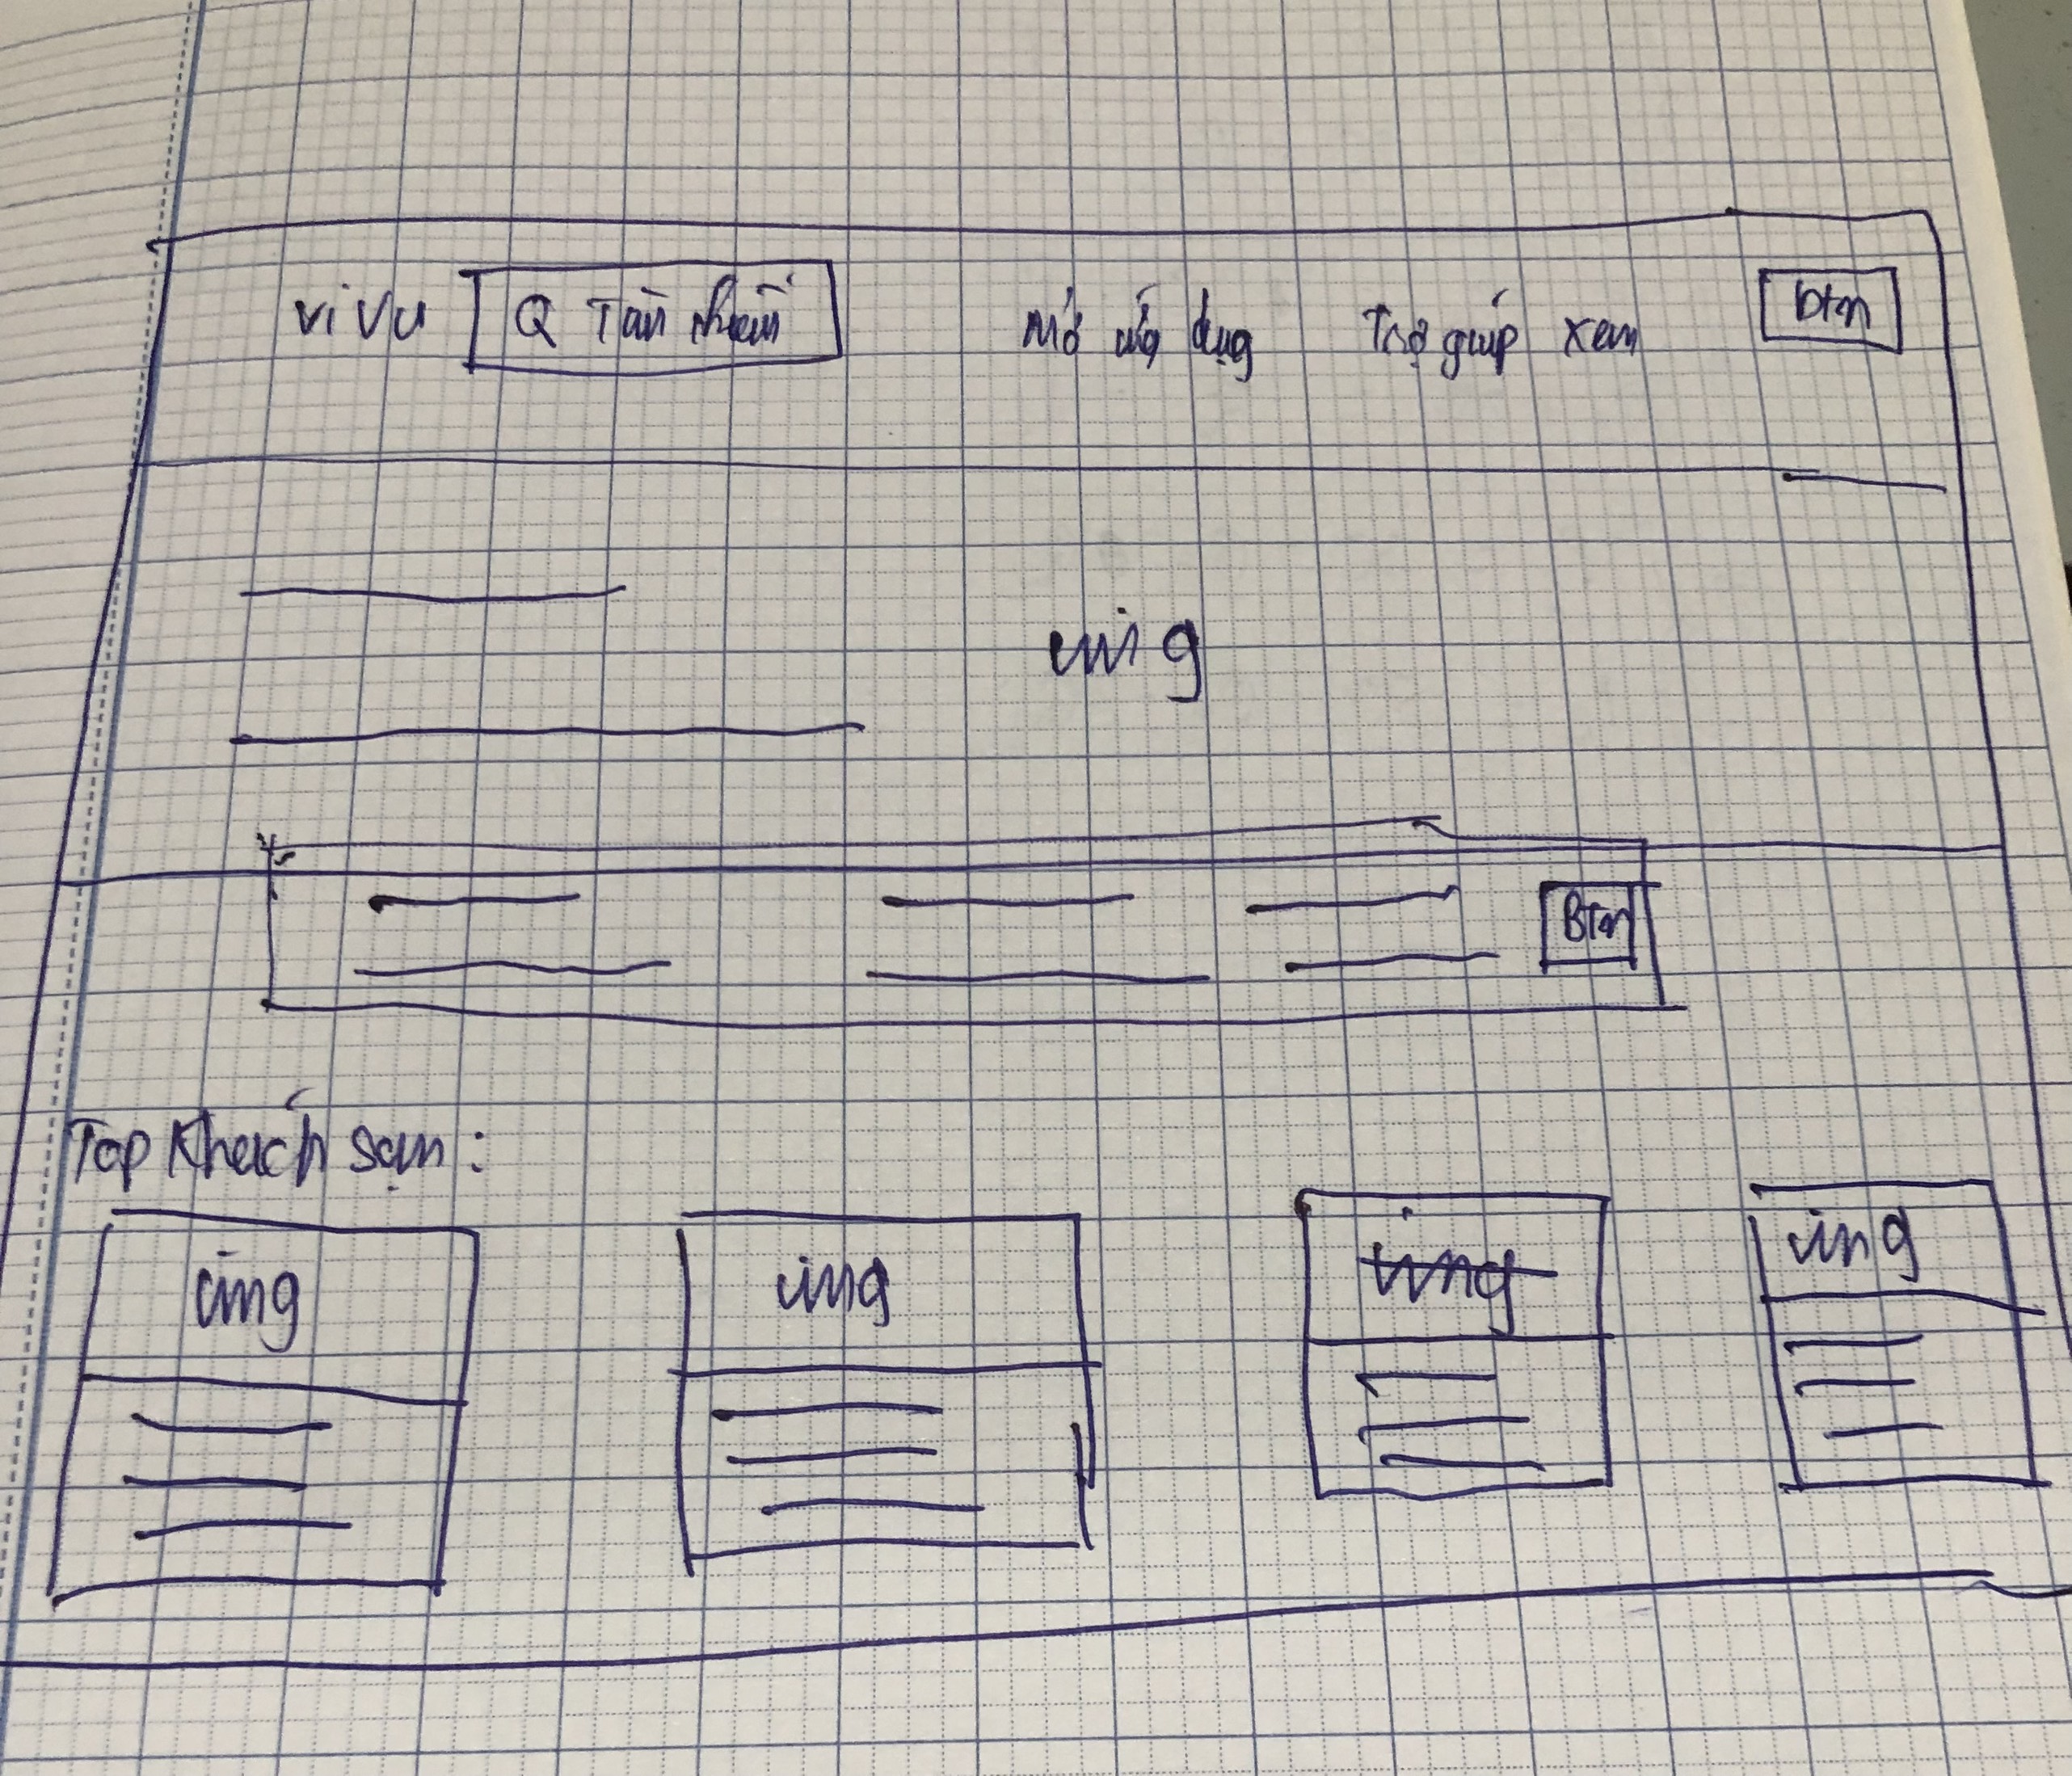 vi vu Q Tìm kiếm Mở ứng dụng Trợ giúp Xem btn
img
Btn
Top Khách sạn :
img img img img